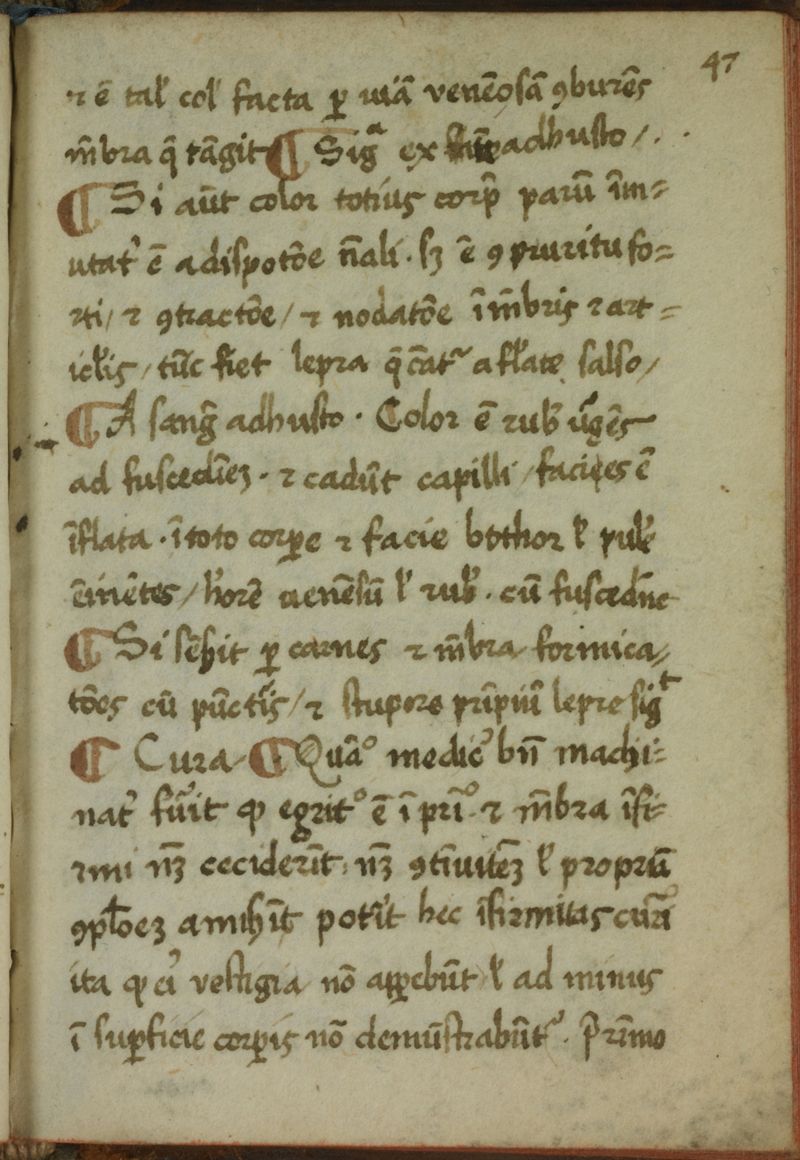 47
⁊ ē tal' col' facta ꝑ uiā venēosā ꝯburēs
m̄bra q̄ tāgit ¶ Sigᵃ ex adhusto /.
¶ Si aūt color totius corp̄ parū īm=
utat' ē a dispotōe n̄ali · sꝫ ē ꝯ pruritu fo=
rti / ⁊ ꝯtractōe / ⁊ nodatōe ī m̄bris ⁊ art=
icl'is / tūc fiet lepra a fl'ate salso /
¶ A sanḡ adhusto · Color ē rub' ūgēs
ad fuscediēꝫ · ⁊ cadūt capilli / facies ē
īflata · ī toto corꝑe ⁊ facie bothor l' pul'
ēinētes / h'orē uenēsū l' rub' · cū fuscedīe
¶ Si sēt̄it ꝑ carnes ⁊ m̄bra formica=
tōes cū pūct'is / ⁊ stupore prīpiū lepre sigᵗ
¶ Cura ¶ Quāᵒ medic' bn̄ machi=
nat' fūit ꝙ egritᵒ ē ī prīᵒ · ⁊ m̄bra īfi=
rmi nꝫ ceciderīt · nꝫ ꝯtīuitēꝫ l' propriā
ꝯpl'oēꝫ amiserīt poterit hec īfirmitas curāi
ita ꝙ ei' vestigia nō apꝑebūt l' ad minus
ī suꝑficie corꝑis nō demūstrabūt' · Prīmo